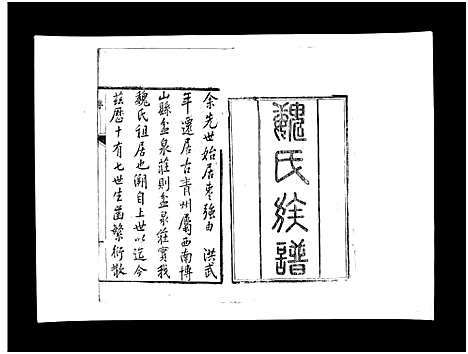 魏氏族譜
余先世始居棗強由 洪武
年遷居古青州屬西南博
山縣盆泉莊則盆泉莊實我
魏氏祖居也溯自上世以迄今
茲歷十有七世生齒繁衍散